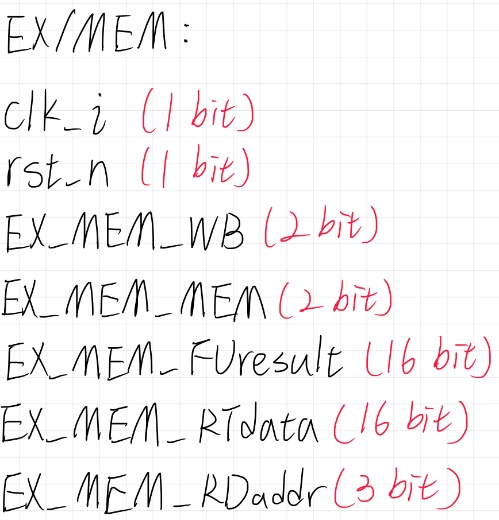 EX/MEM:
clk_i (1 bit)
rst_n (1 bit)
EX_MEM_WB (2 bit)
EX_MEM_MEM (2 bit)
EX_MEM_FUresult (16 bit)
EX_MEM_RTdata (16 bit)
EX_MEM_RDaddr (3 bit)